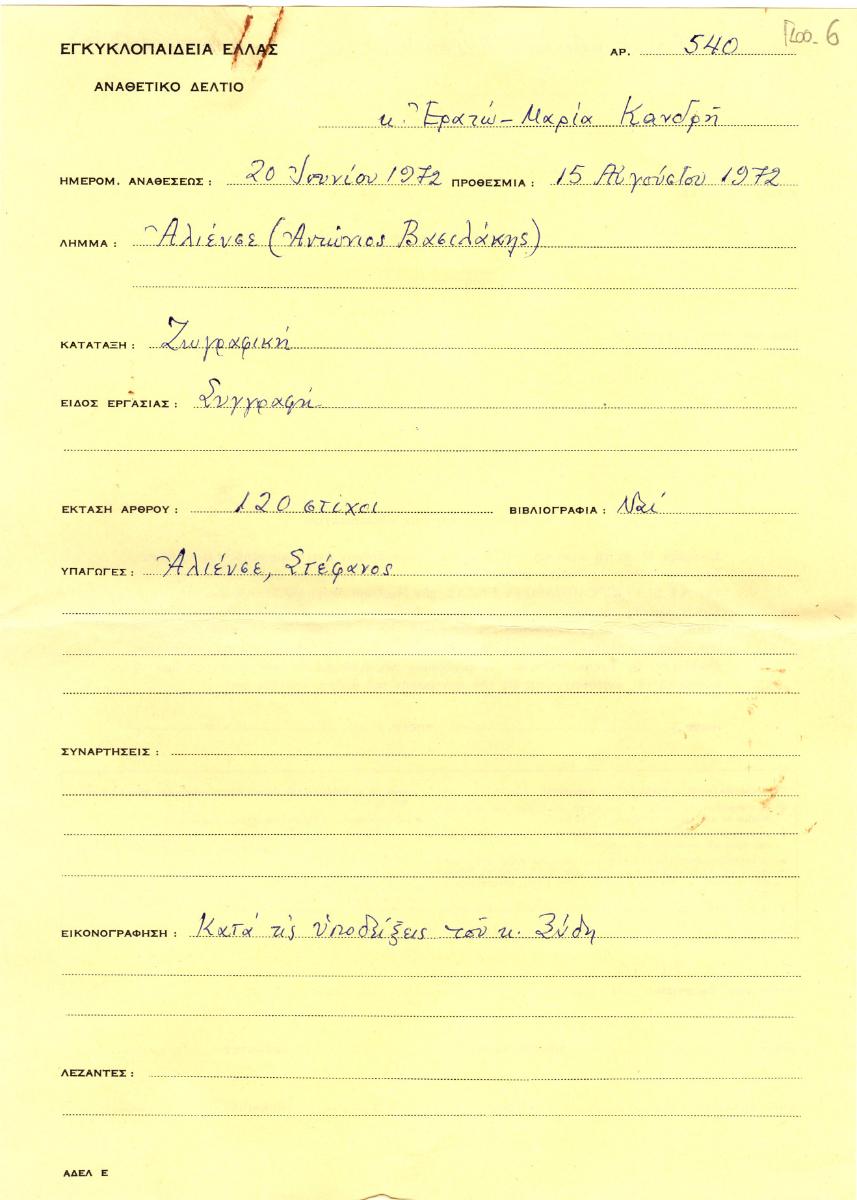 ΕΓΚΥΚΛΟΠΑΙΔΕΙΑ ΕΛΛΑΣ
ΑΡ. 540
6
ΑΝΑΘΕΤΙΚΟ ΔΕΛΤΙΟ
κ. Ἐρατώ-Μαρία Κανδρῆ
ΗΜΕΡΟΜ. ΑΝΑΘΕΣΕΩΣ : 20 Ἰουνίου 1972 ΠΡΟΘΕΣΜΙΑ : 15 Αὐγούστου 1972
ΛΗΜΜΑ : Ἀλιένσε (Ἀντώνιος Βασιλάκης)
ΚΑΤΑΤΑΞΗ : Ζωγραφική
ΕΙΔΟΣ ΕΡΓΑΣΙΑΣ : Συγγραφή
ΕΚΤΑΣΗ ΑΡΘΡΟΥ : 120 στίχοι ΒΙΒΛΙΟΓΡΑΦΙΑ : Ναί
ΥΠΑΓΩΓΕΣ : Ἀλιένσε, Στέφανος
ΣΥΝΑΡΤΗΣΕΙΣ :
ΕΙΚΟΝΟΓΡΑΦΗΣΗ : Κατά τίς ὑποδείξεις τοῦ κ. Ξύδη
ΛΕΖΑΝΤΕΣ :
ΑΔΕΛ Ε